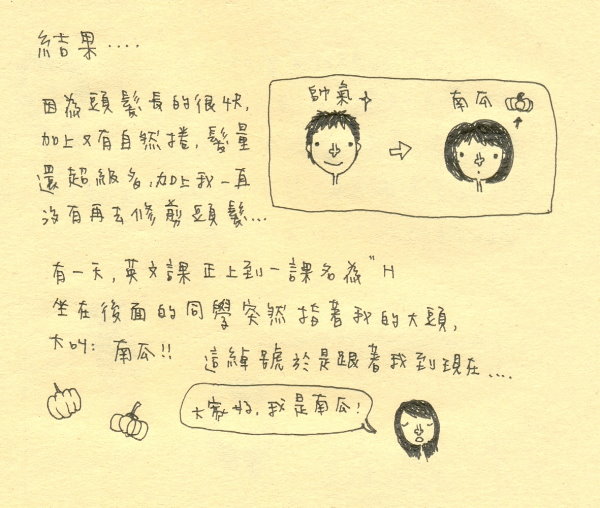 結果....
帥氣
南瓜
因為頭髮長的很快,
加上又有自然捲,髮量
還超級多,加上我一直
沒有再去修剪頭髮...
有一天,英文課正上到一課名為"H
坐在後面的同學突然指著我的大頭,
大叫: 南瓜!! 這綽號於是跟著我到現在....
大家好,我是南瓜!